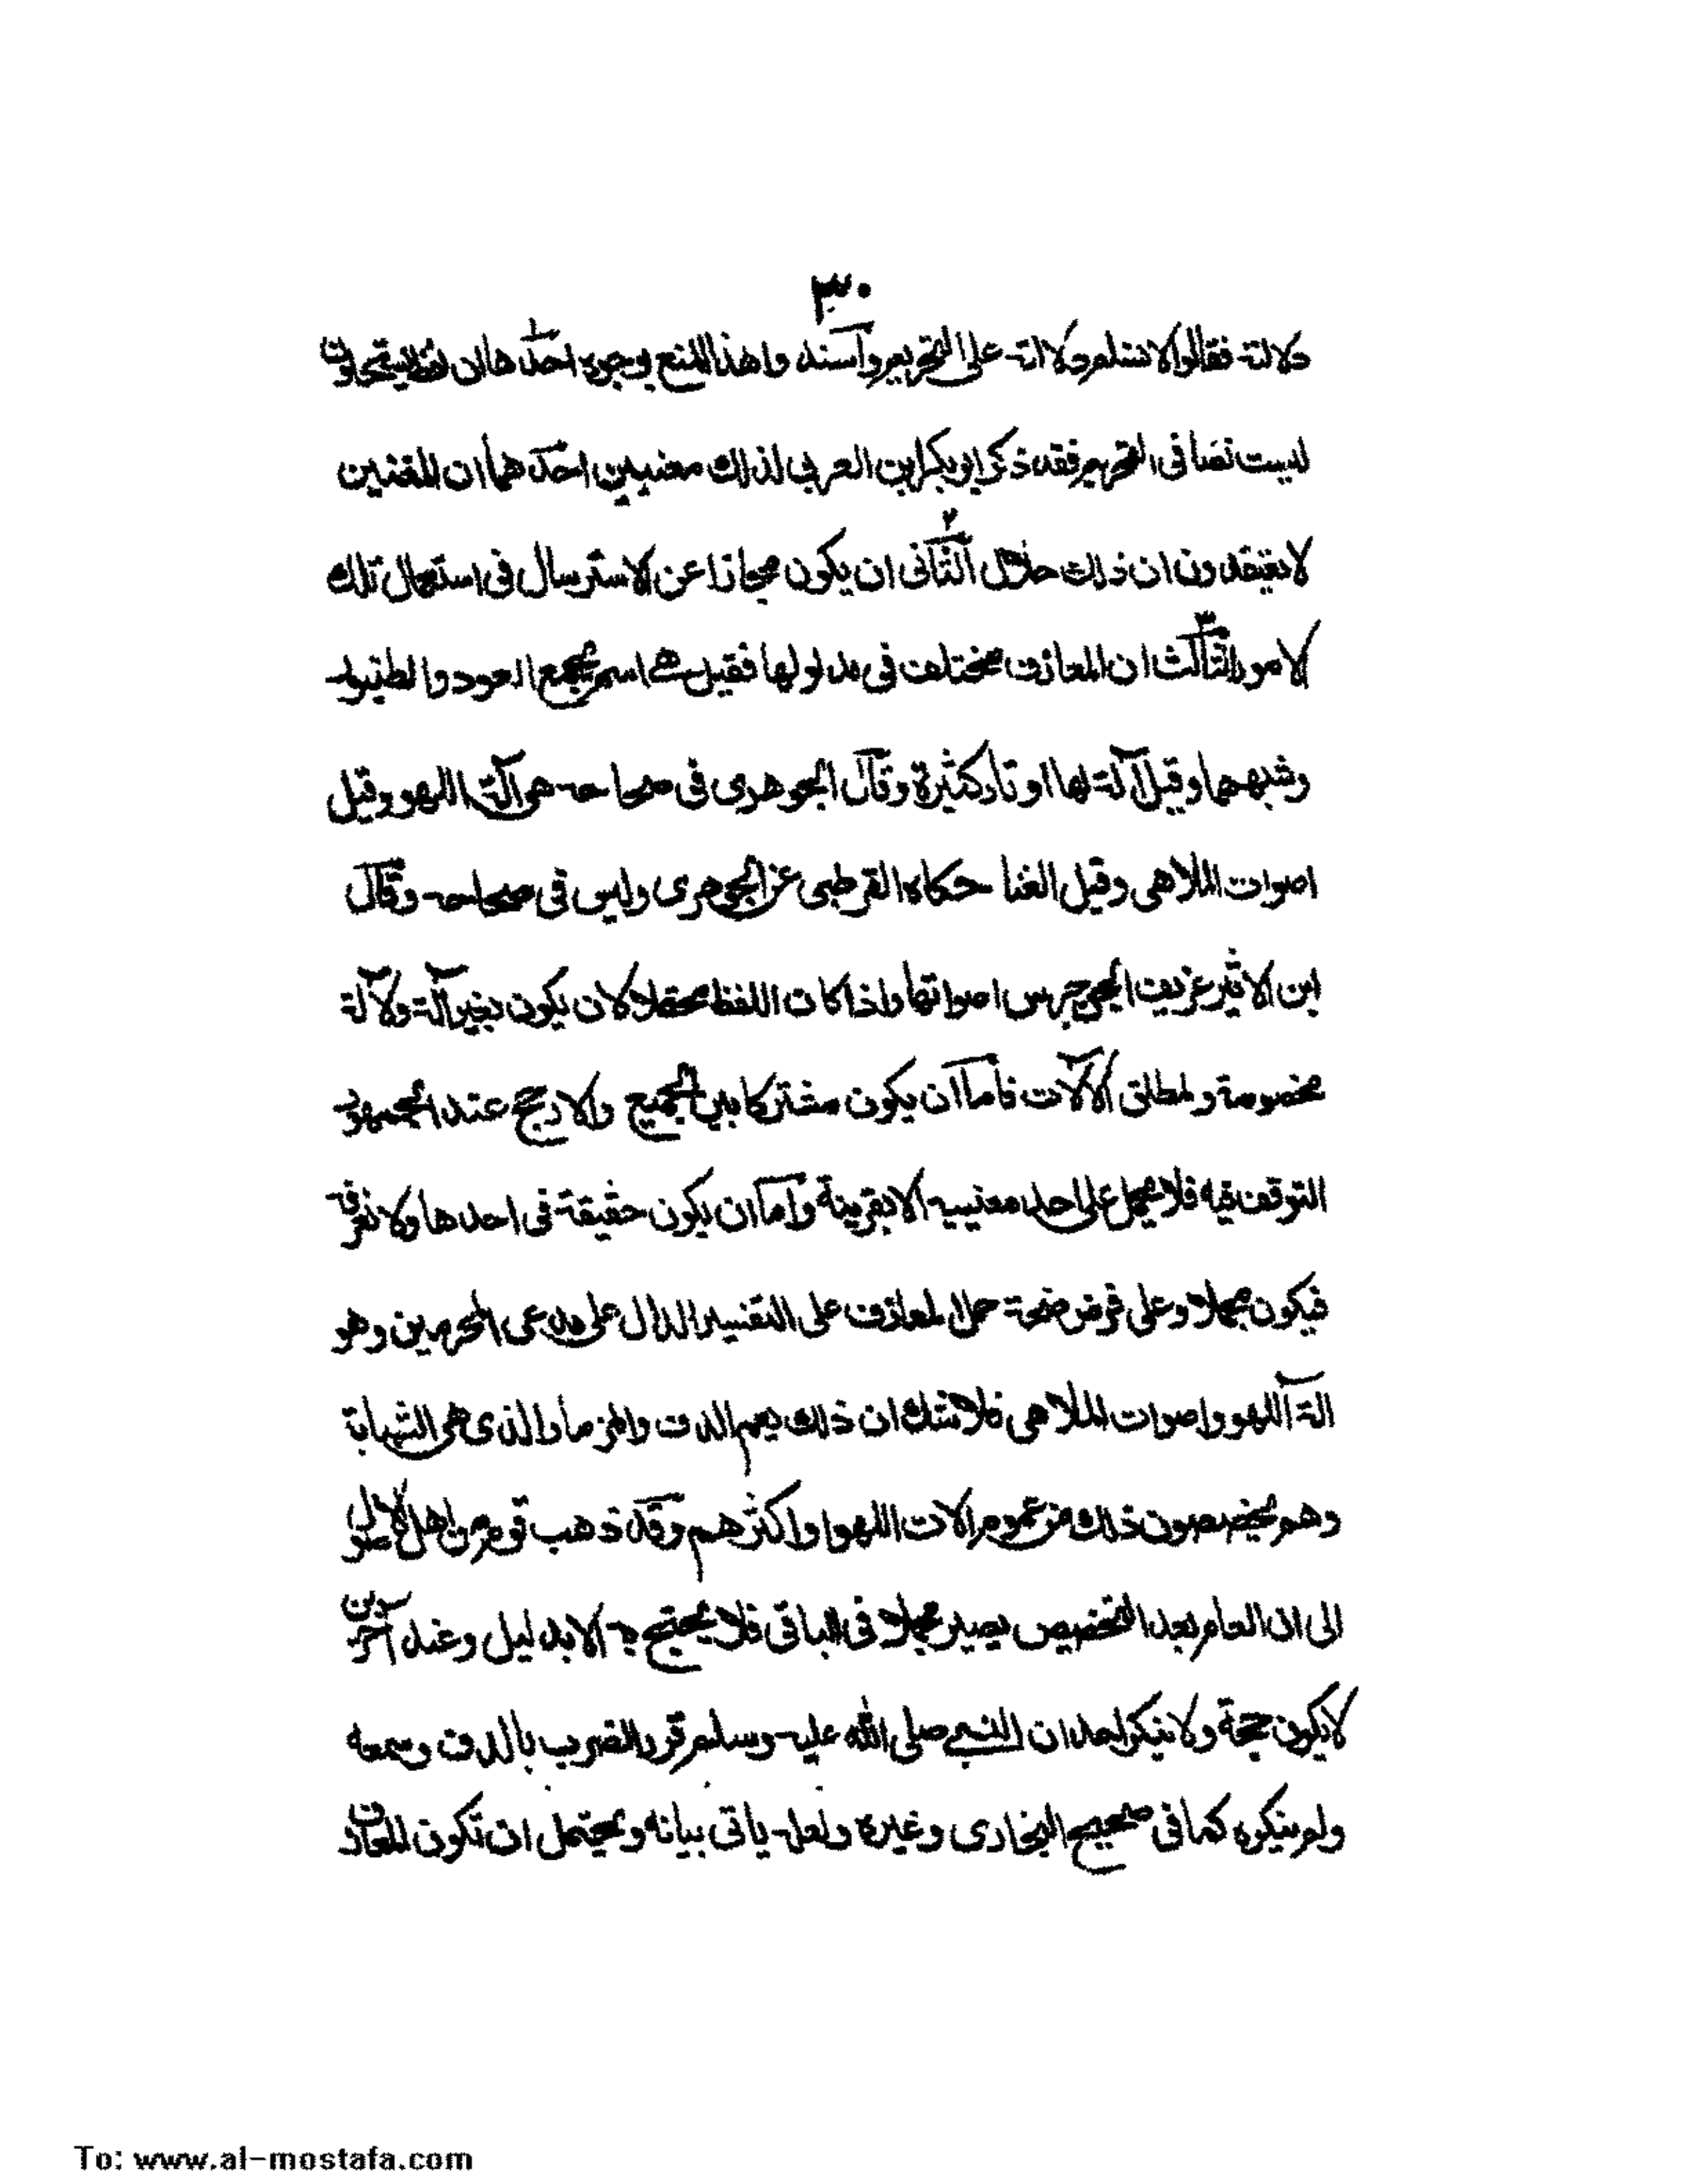 ٣٠
دلالته فقالوا لا نسلم دلالته على التحريم وآسندوا هذا المنع بوجوه احدها ان لفظة يستحلون
ليست نصا فى التحريم فقد ذكر ابو بكر ابن العربي لذلك معنيين احدهما ان المعنين
لا يعتقدون ان ذلك حلال الثانى ان يكون مجازا عن الاسترسال فى استعمال تلك
الامور الثالث ان المعازف مختلف فى مدلولها فقيل هى اسم يجمع العود والطنبور
وشبههما وقيل آلة لها اوتار كثيرة وقال الجوهرى فى صحاحه هو آلة اللهو وقيل
اصوات الملاهى وقيل الغنا حكاه القرطبى عن الجوهرى وليس فى صحاحه وقال
ابن الاثير عزيف الجن جرس اصواتها واذا كان اللفظ محتملا لان يكون بغير آلة ولآلة
مخصوصة ولمطلق الآلات فأما ان يكون مشتركا بين الجميع والارجح عند الجمهور
التوقف فيه فلا يحمل على احد معنييه الا بقرينة واما ان يكون حقيقة فى احدها ولا نعرفه
فيكون مجملا وعلى فرض صحة حمل المعازف على التفسير الدال على مدعى المحرمين وهو
الة اللهو واصوات الملاهى فلا شك ان ذلك يعم الدف والمزمار الذى هى الشبابة
وهم يخصصون ذلك من عموم الات اللهو او اكثرهم وقد ذهب قوم من اهل الاصول
الى ان العام بعد التخصيص يصير مجملا فى الباقى فلا يحتج به الا بدليل وعند آخرين
لا يكون حجة ولا ينكر احد ان النبى صلى الله عليه وسلم قرر الضرب بالدف وسمعه
ولم ينكره كما فى صحيح البخارى وغيره ولعله ياتى بيانه ويحتمل ان تكون المعازف
To: www.al-mostafa.com